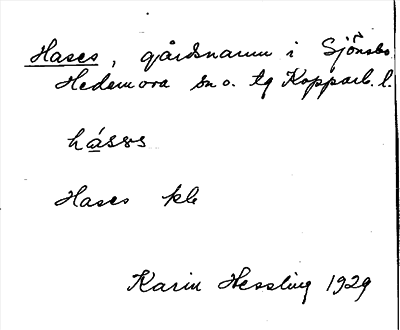 Hases, gårdsnamn i Sjönsbo
Hedemora sn o. tg Kopparb. l.
hásəs
Hases kb
Karin Hessling 1929